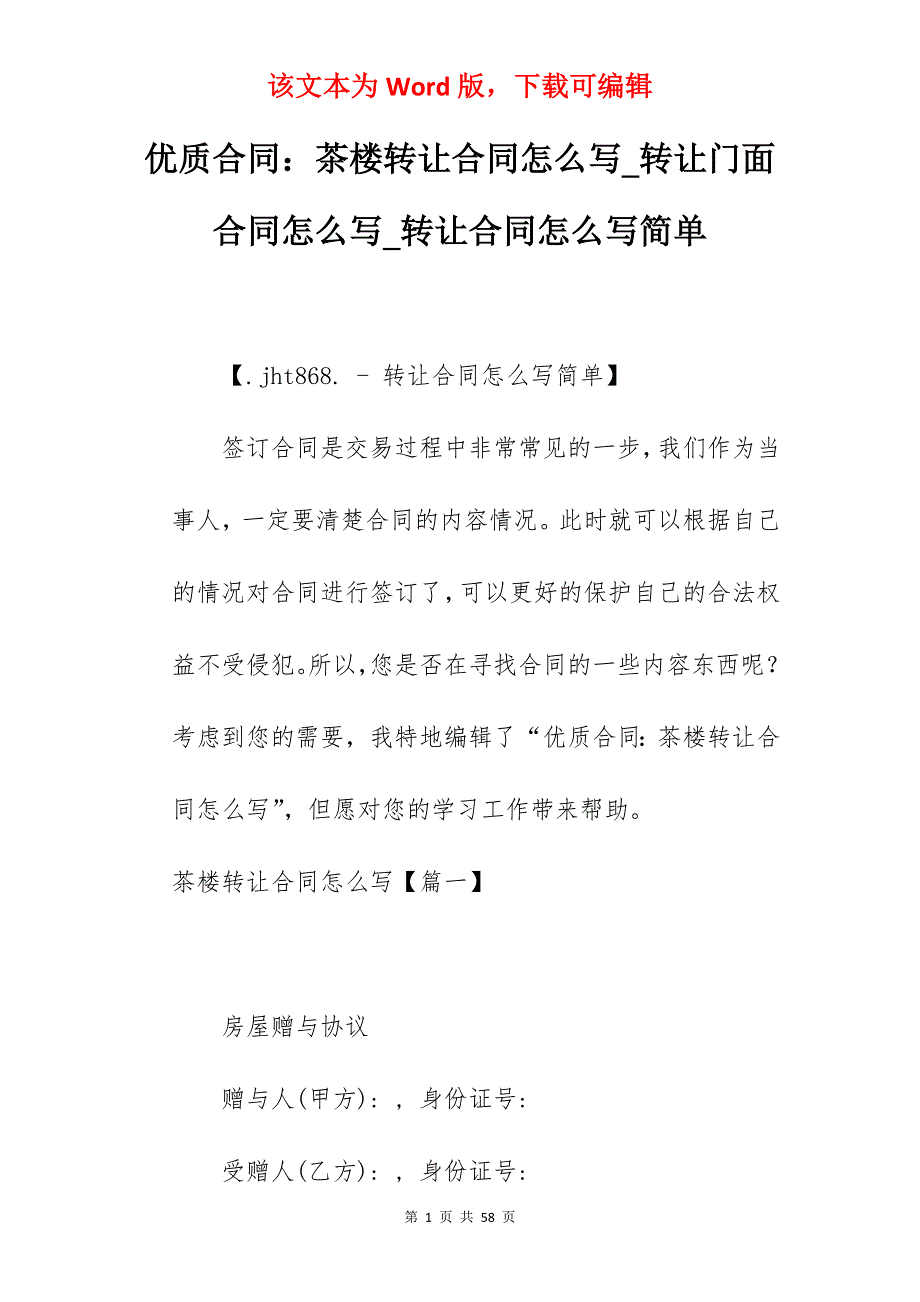 该文本为 Word 版，下载可编辑
优质合同：茶楼转让合同怎么写_转让门面
合同怎么写_转让合同怎么写简单
【.jht868. - 转让合同怎么写简单】
签订合同是交易过程中非常常见的一步，我们作为当
事人，一定要清楚合同的内容情况。此时就可以根据自己
的情况对合同进行签订了，可以更好的保护自己的合法权
益不受侵犯。所以，您是否在寻找合同的一些内容东西呢？
考虑到您的需要，我特地编辑了“优质合同：茶楼转让合
同怎么写”，但愿对您的学习工作带来帮助。
茶楼转让合同怎么写【篇一】
房屋赠与协议
赠与人(甲方)：，身份证号：
受赠人(乙方)：，身份证号：
第 1 页 共 58 页